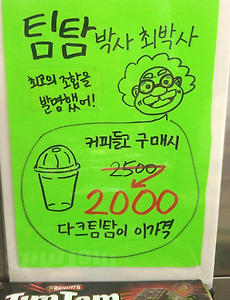 팀탐 박사 최박사
최고의 조합을
발명했어!
커피들고 구매시
2500
2000
다크팀탐이 이가격
ARNOTT'S
TimTam